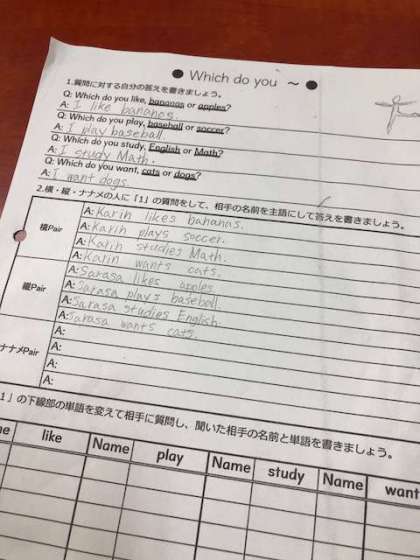 ● Which do you ～ ●
1.質問に対する自分の答えを書きましょう。
Q: Which do you like, bananas or apples?
A: I like bananas.
Q: Which do you play, baseball or soccer?
A: I play baseball
Q: Which do you study, English or Math?
A: I study Math.
Q: Which do you want, cats or dogs?
A: I want dogs.
2.横・縦・ナナメの人に「1」の質問をして、相手の名前を主語にして答えを書きましょう。
横Pair
A: Karin likes bananas.
A: Karin plays soccer.
A: Karin studies Math.
A: Karin wants cats.
縦Pair
A: Sarasa likes apples
A: Sarasa plays baseball.
A: Sarasa studies English.
A: Sarasa wants cats.
ナナメPair
A:
A:
A:
A:
1」の下線部の単語を変えて相手に質問し、聞いた相手の名前と単語を書きましょう。
me like Name play Name study Name want